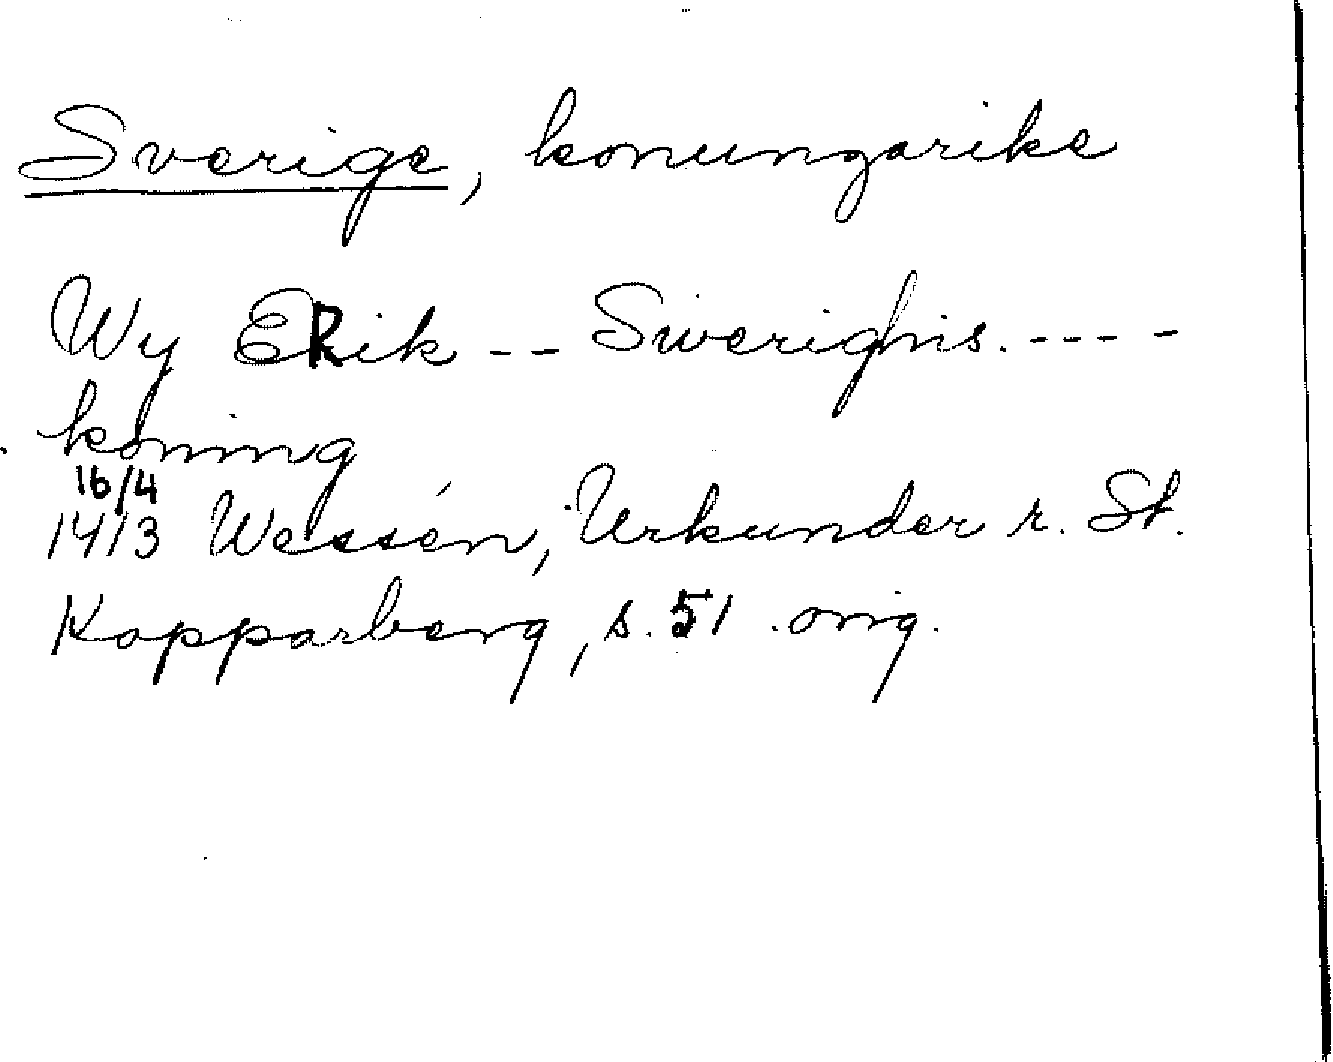 Sverige, konungarike
Wy ERik -- Swerighis. ----
koning
16/4
1413 Wessén, Urkunder r. St.
Kopparberg, s. 51 . orig.